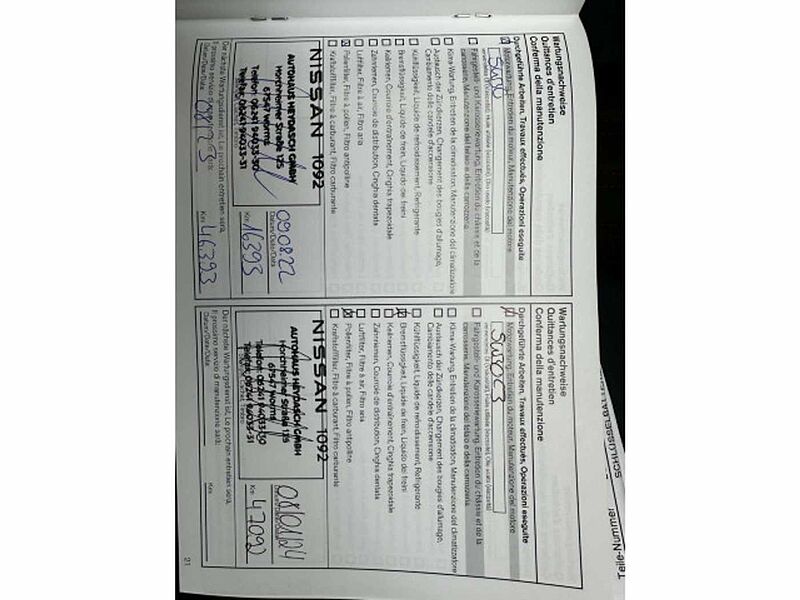 Wartungsnachweise
Quittances d'entretien
Conferma della manutenzione
Durchgeführte Arbeiten, Travaux effectués, Operazioni eseguite
Motorwartung, Entretien du moteur, Manutenzione del motore
Fahrgestell- und Karosseriewartung, Entretien du châssis et de la
carrosserie, Manutenzione del telaio e della carrozzeria
Klima-Wartung, Entretien de la climatisation, Manutenzione del climatizzatore
Austausch der Zündkerzen, Changement des bougies d'allumage,
Cambiamento delle candele d'accensione
Kühlflüssigkeit, Liquide de refroidissement, Refrigerante
Bremsflüssigkeit, Liquide de frein, Liquido dei freni
Keilriemen, Courroie d'entraînement, Cinghia trapezoidale
Zahnriemen, Courroie de distribution, Cinghia dentata
Luftfilter, Filtre à air, Filtro aria
Pollenfilter, Filtre à pollen, Filtro antipolline
Kraftstofffilter, Filtre à carburant, Filtro carburante
NISSAN 1092
AUTOHAUS HEYDASCH GMBH
Horchheimer Straße 125
67547 Worms
Telefon: 06241 94033-30
Telefax: 06241 94033-31
090822
Datum/Date/Data
Km: 16393
Der nächste Wartungsdienst ist, Le prochain entretien sera,
Il prossimo servizio di manutenzione sarà:
Datum/Date/Data: 08/23
Km: 46393
Wartungsnachweise
Quittances d'entretien
Conferma della manutenzione
Durchgeführte Arbeiten, Travaux effectués, Operazioni eseguite
Motorwartung, Entretien du moteur, Manutenzione del motore
Fahrgestell- und Karosseriewartung, Entretien du châssis et de la
carrosserie, Manutenzione del telaio e della carrozzeria
Klima-Wartung, Entretien de la climatisation, Manutenzione del climatizzatore
Austausch der Zündkerzen, Changement des bougies d'allumage,
Cambiamento delle candele d'accensione
Kühlflüssigkeit, Liquide de refroidissement, Refrigerante
Bremsflüssigkeit, Liquide de frein, Liquido dei freni
Keilriemen, Courroie d'entraînement, Cinghia trapezoidale
Zahnriemen, Courroie de distribution, Cinghia dentata
Luftfilter, Filtre à air, Filtro aria
Pollenfilter, Filtre à pollen, Filtro antipolline
Kraftstofffilter, Filtre à carburant, Filtro carburante
NISSAN 1092
AUTOHAUS HEYDASCH GMBH
Horchheimer Straße 125
67547 Worms
Telefon: 06241 94033-30
Telefax: 06241 94033-31
08/01/24
Datum/Date/Data
Km: 47092
Der nächste Wartungsdienst ist, Le prochain entretien sera,
Il prossimo servizio di manutenzione sarà:
Datum/Date/Data:
Km:
21
Teile-Nummer